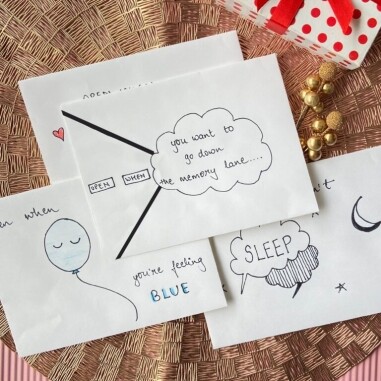 OPEN
OPEN WHEN
you want to
go down
the memory lane.....
when
you're feeling
BLUE
SLEEP